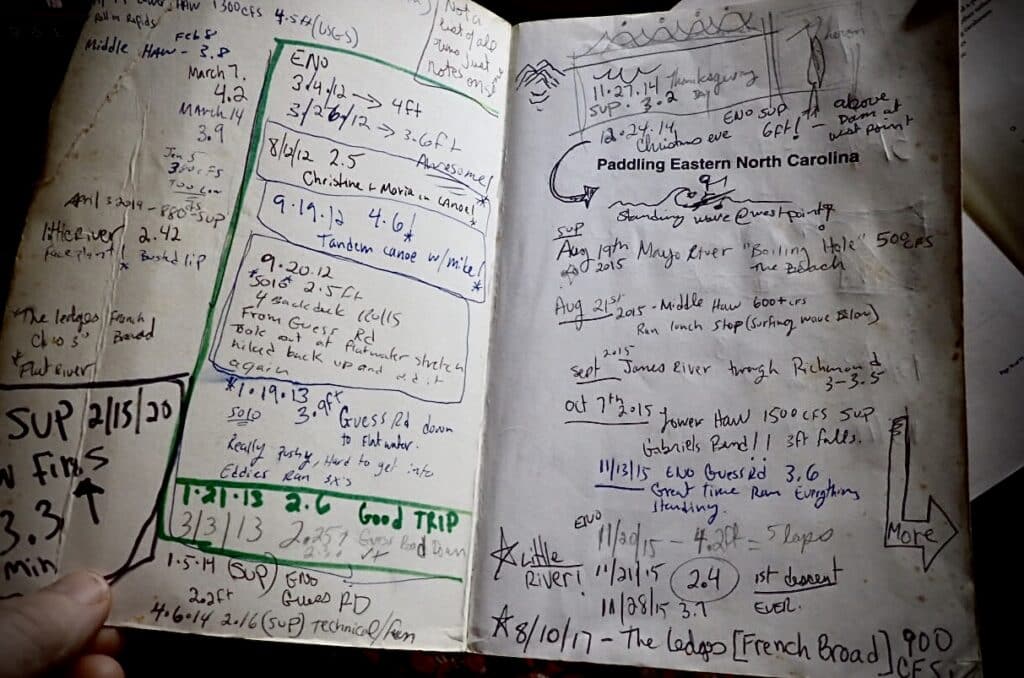 Haw 1300 CFS 4.5ft (USGS)
Rapids
Feb 8
Middle Haw - 3.8
March 7.
4.2
March 14
3.9
Jan 5
300 CFS
Too Low
April 3 2014 - 880 SUP
little River 2.42
Busted lip
*The ledges French
Broad
*Flat River
SUP 2/15/20
Fins
3.3
min
Not a
list of all
runs Just
notes on some
ENO
3/4/12 → 4ft
3/26/12 → 3.6ft
Awesome!
8/6/12 2.5
Christine + Maria in canoe!
9.19.12 4.6!
Tandem canoe w/mike!
9.20.12
*Solo* 2.5ft
4 Backdeck rolls
From Guess Rd
Took out at flatwater stretch
hiked back up and did it
again
*1.19.13 3.9ft
Solo Guess Rd down
to Flatwater.
Really pushy, Hard to get into
Eddies Ran 3x's
1.21.13 2.6 Good TRIP
3/3/13 2.25?
Guess Road Down
1.5.14 (SUP) ENO
2.2ft Guess RD
4.6.14 2.16 (SUP) technical/fun
11.27.14 Thanksgiving
SUP. 3.2 Day
12.24.14 ENO SUP above
Christmas eve 6ft! - Dam at
west point
Paddling Eastern North Carolina
Standing wave @ westpoint
SUP
Aug 19th Mayo River "Boiling Hole" 50CFS
2015 The Beach
Aug 21st 2015 - Middle Haw 600+cfs
Ran lunch stop (Surfing wave Below)
2015
Sept James River through Richmond
3-3.5
Oct 7th 2015 Lower Haw 1500CFS SUP
Gabriels Bend!! 3ft falls.
11/13/15 ENO Guess Rd 3.6
Great time Ran Everything
Standing.
ENO
11/20/15 - 4.2ft = 5 laps
*Little
River! 11/21/15 2.4 1st descent
EVER.
11/28/15 3.7
More
*8/10/17 - The Ledges [French Broad] 900
CFS